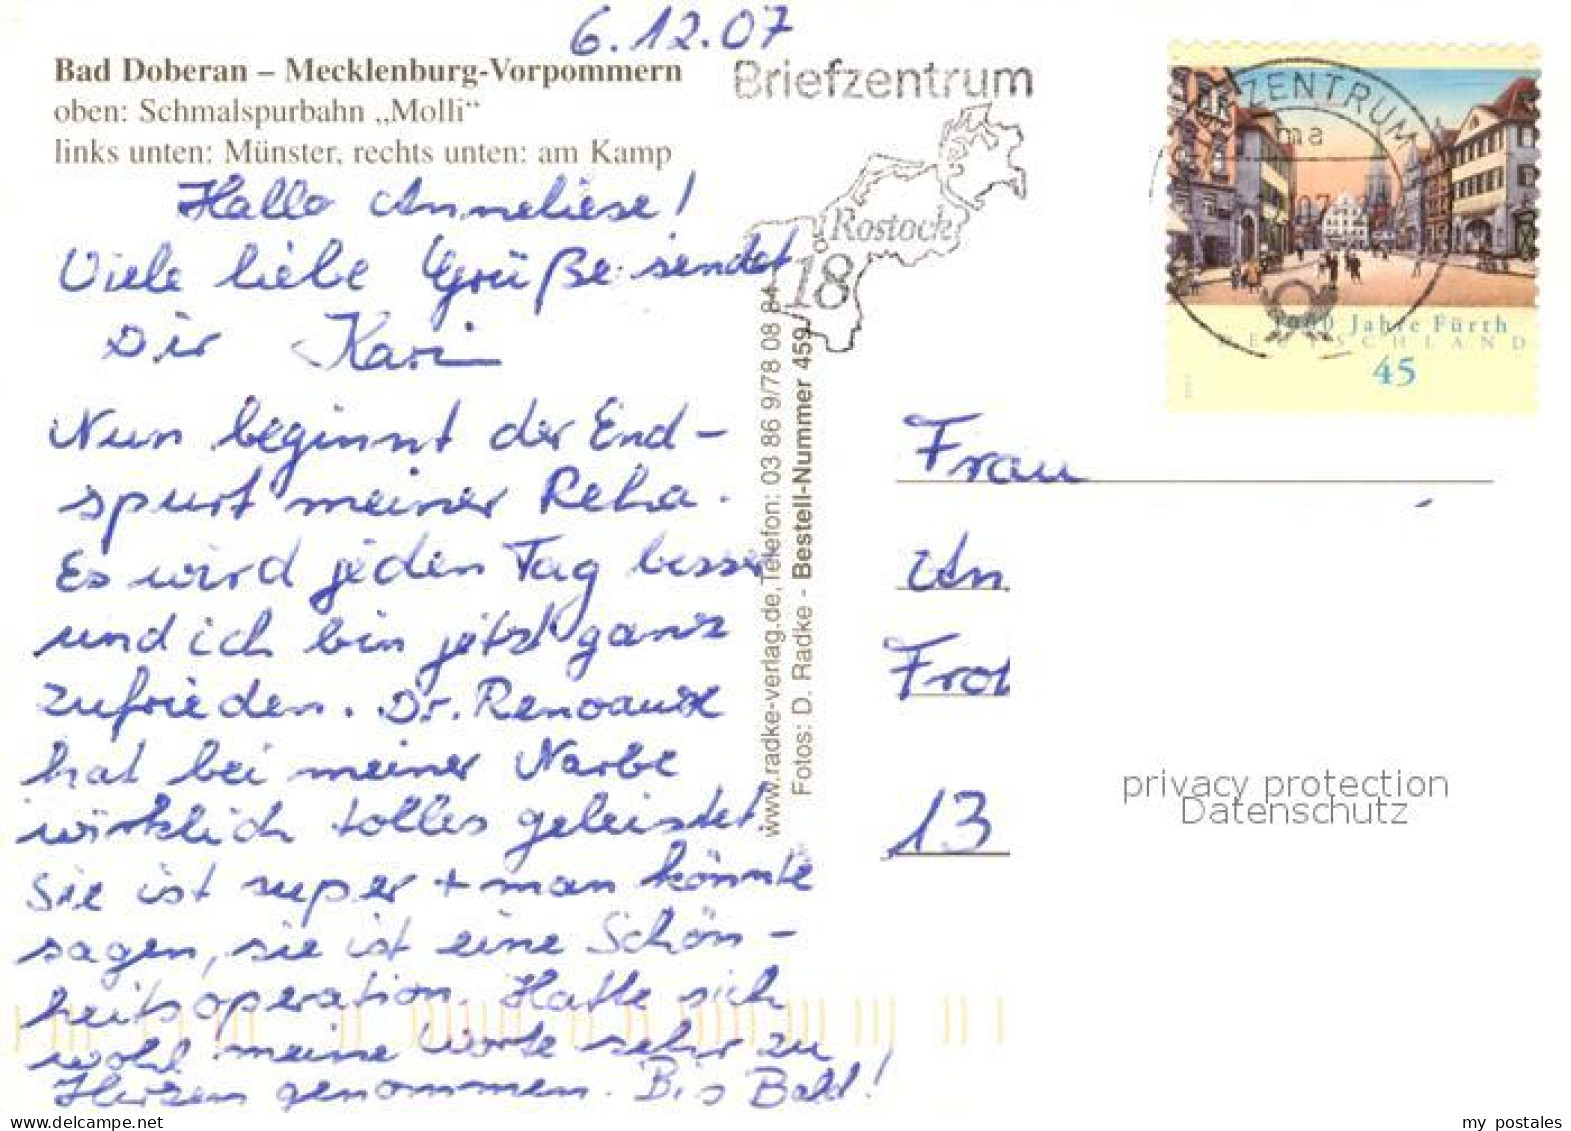 6.12.07
Bad Doberan – Mecklenburg-Vorpommern
oben: Schmalspurbahn „Molli“
links unten: Münster, rechts unten: am Kamp
Hallo Anneliese!
Viele liebe Grüße sendet
Dir Karin
Nun beginnt der End-
spurt meiner Reha.
Es wird jeden Tag besser
und ich bin jetzt ganz
zufrieden. Dr.
hat bei meiner Narbe
wirklich tolles geleistet.
Sie ist super + man könnte
sagen, sie ist eine Schön-
heitsoperation. Hatte sich
wohl meine Worte sehr zu
Herzen genommen. Bis Bald!
www.radke-verlag.de, Telefon: 03 86 9/78 08 84
Fotos: D. Radke - Bestell-Nummer 459
Briefzentrum
Rostock
18
ZENTRUM
ma
1000 Jahre Fürth
DEUTSCHLAND
45
Frau
An
Fro
13
privacy protection
Datenschutz
my_postales